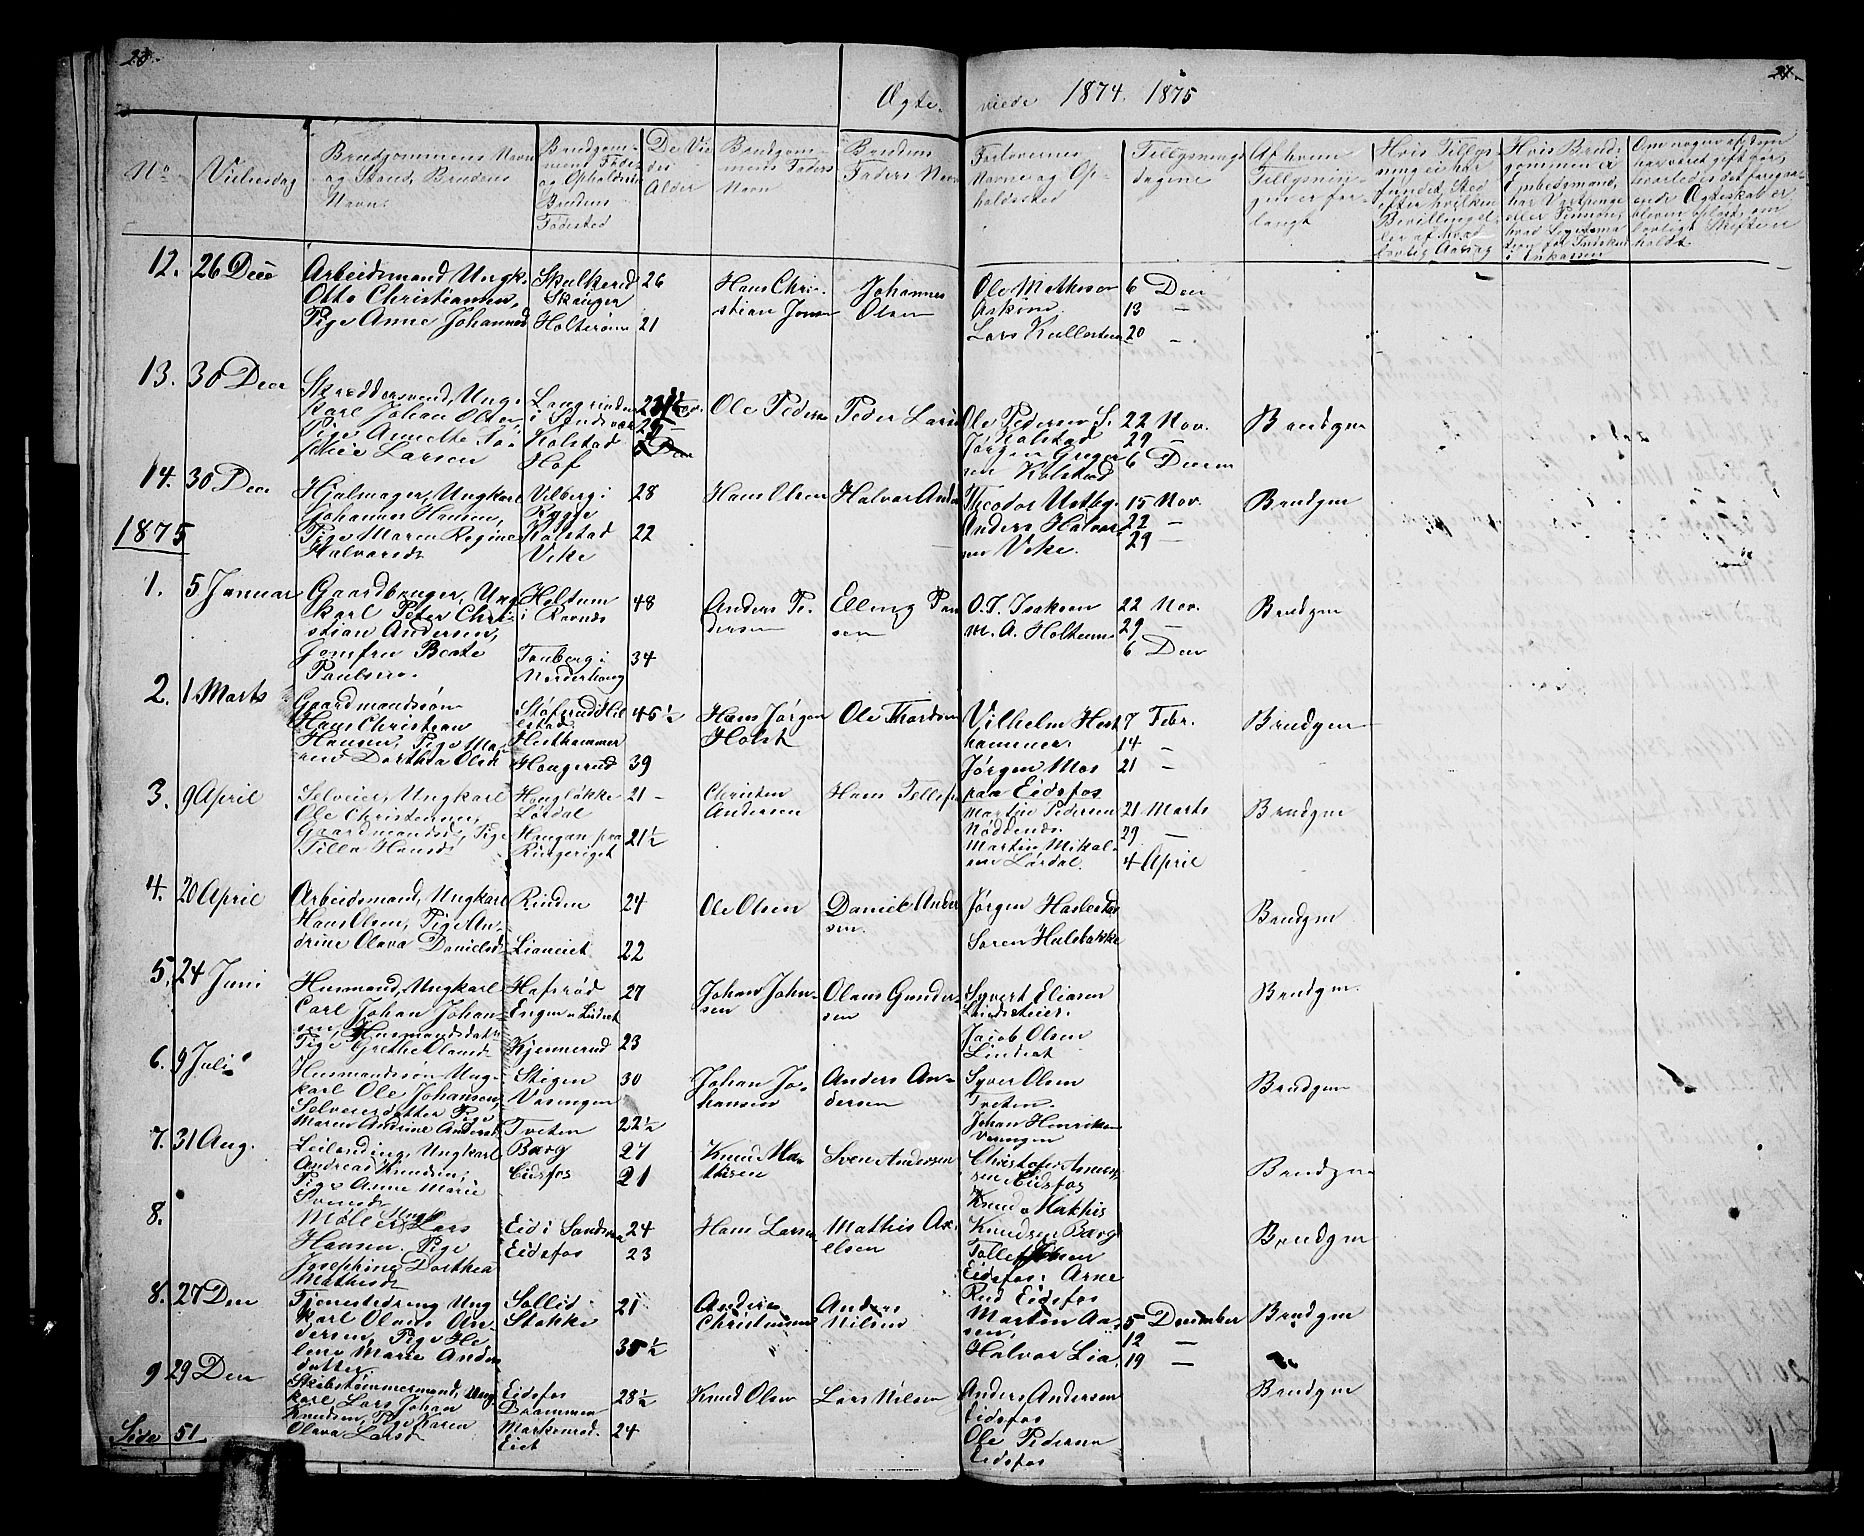 23.
24.
Ægte- viede 1874. 1875
No
Vielsesdag
Brudgommens Navn
og Stand, Brudens
Navn.
Brudgom-
mens Føde-
og Opholdssted
Brudens
Fødested
De Vie
des
Alder
Brudgom-
mens Faders
Navn
Brudens
Faders Navn
Forlovernes
Navne og Op-
holdssted
Tillysnings
dagene
Af hvem
Tillysnin-
gen er for-
langt
Hvis Tillys
ning ei har
fundet Sted
efter hvilken
Bevilling el-
ler af hvad
lovlig Aarsag
Hvis Brud-
gommen er
Embedsmand,
Om nogen af dem
har været gift før,
hvorledes det foregaa-
ende Ægteskab er
bleven opløst, om
lovligt Skifte er
holdt.
12. 26 Dec
Arbeidsmand, Ungk.
Otto Christiansen,
Pige Anne Johannesd
Skulkerud
Skouger
Holterøen
26
21
Hans Chri-
stian Jensen
Johannes
Olsen
Ole Mathesen
Askim
Lars Kullerteen
6 Decr
13 —
20 —
13. 30 Decr
Skreddersvend, Ung-
karl Johan Olsen,
Pige Annette So-
phie Larsen
Langrinden
i Sandsvær
Kolstad
Hof
Ole Pedersen
Peder Larsen
Ole Pedersen S.
Kolstad
Jørgen Greger
sen Kolstad
22 Nov.
29 —
6 Decem
Brudgm
14. 30 Decr
Hjulmager, Ungkarl
Johannes Hansen,
Pige Maren Regine
Halvorsd.
Vilberg i
Rygge
Kolstad
Vike
28
22
Hans Olsen
Halvor Ander
Theodor Ustbg.
Anders Halvor
sen Vike.
15 Nov.
22 —
29 —
Brudgm
1875
1. 5 Januar
Gaardbruger, Ung
karl Peter Chri-
stian Andersen,
Jomfru Beate
Paulsen.
Holtum
i Ravnes
Tanberg i
Norderhoug
48
34
Anders Pe-
dersen
Elling Paul
sen
O. T. Isaksen
M. A. Holtum
22 Nov.
29 —
6 Decr
Brudgm
2. 1 Marts
Gaardmandssøn
Hans Christian
Hansen, Pige Ma-
ren Dorthea Olsd
Støfrud Hil
lestad
Hesthammer
Hougerud
45 ½
39
Hans Jørgen
Holst
Ole Thordsen
Vilhelm Hest
hammer.
Jørgen Mos
paa Eidsfos
7 Febr.
14 —
21 —
Brudgm
3. 9 April
Selveier, Ungkarl
Ole Christensen,
Gaardmandsd, Pige
Tilla Hansd
Hougløkke
Lørdal
Haugan paa
Ringeriget
21 —
21 ½
Christen
Andersen
Hans Tollefs
Martin Pedersen
Nøddenes.
Martin Mikal-
sen Lørdal
21 Marts
29 —
4 April
Brudgm
4. 20 April
Arbeidsmand, Ungkarl
Hans Olsen, Pige An-
drine Olava Danielsd
Rinden
Lianeiet
24
22
Ole Olsen
Daniel Ander
sen.
Jørgen Haslestad
Søren Hulebakke
Brudgm
5. 24 Juni
Husmand, Ungkarl
Carl Johan Johan-
sen, Husmandsdatr
Pige Grethe Olausd
Hafsrød
Engen u Lindset
Kjennerud
27
23
Johan Johan-
sen
Olaus Gunder-
sen
Syvert Eliasen
Lindseteier.
Jacob Olsen
Lindset
Brudgm.
6. 9 Juli
Husmandssøn Ung-
karl Ole Johansen,
Selveierdatter Pige
Maren Andrine Andersd
Stigen
Vasengen
Tveten
30
22 ½
Johan Jo-
hansen
Anders An-
dersen
Syver Olsen
Tveten.
Johan Henriksen
Vasengen
Brudgm
7. 31 Aug.
Leilending, Ungkarl
Andreas Knudsen,
Pige Anne Marie
Svensd
Barg
Eidsfos
27
21
Knud Ma-
thisen
Sven Andersen
Christofer Asmun
sen Eidsfos
Knud Mathis
Brudgm
8.
Møller, Ungk Lars
Hansen. Pige
Josephine Dorthea
Mathisd
Eid i Sandsvær
Eidsfos
24
23
Hans Larsen
Mathis Ax-
elsen
Knudsen Barg
Eidsfos. Arne
Rud Eidsfos
Brudgm
8. 27 Decr
Tjenestedreng Ung
karl Olaus An-
dersen, Pige He-
lene Marie Anders
datter
Sollid
Stokke
21
35 ½
Anders
Christensen
Anders
Nilsen
Martin Aas
sen,
Halvor Lia
5 December
12 —
19 —
Brudgm
9 29 Decr
Skibstømmermand, Ung
karl Lars Johan
Knudsen, Pige Karen
Olava Larsd
Eidsfos
Drammen
Markerud
Eiet
28 ½
24
Knud Olsen
Lars Nilsen
Anders Andersen
Eidsfos
Ole Pedersen
Eidsfos
Brudgm
Side 51